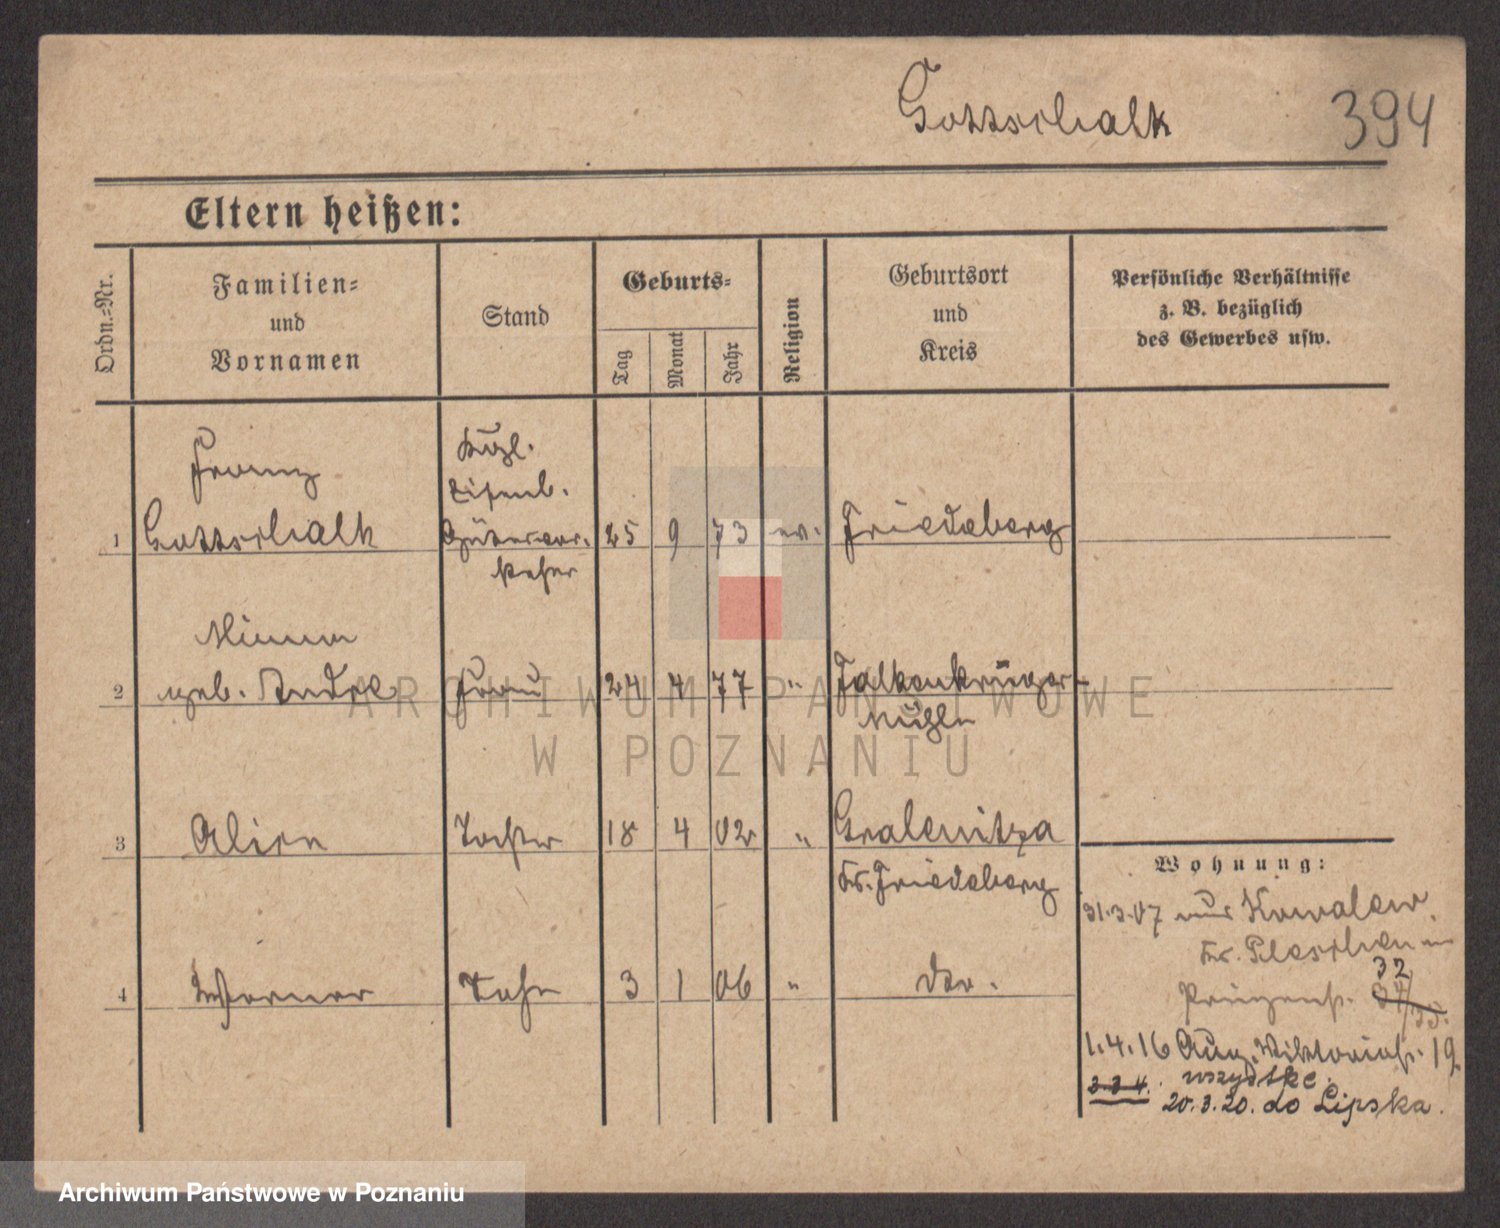 Gottschalk
394
Eltern heißen:
Ordn.-Nr.
Familien-
und
Vornamen
Stand
Geburts-
Tag
Monat
Jahr
Religion
Geburtsort
und
Kreis
Persönliche Verhältnisse
z. B. bezüglich
des Gewerbes usw.
Franz
Kgl.
Eisenb.
1 Gottschalk Gütervor- 25 9 73 ev. Friedeberg
steher
Minna
2 geb. Frau 24 4 77 " Falkenkrüger-
Mühle
3 Alice Tochter 18 4 02 " Gralewitza
Kr. Friedeberg
4 Werner Sohn 3 1 06 " dto.
Wohnung:
31.3.07 aus Kowalew
Kr. Pleschen
32
Prinzenstr.
1.4.16 Aug. Viktoriastr. 19
wszystkie
20.3.20. do Lipska.
ARCHIWUM PAŃSTWOWE
W POZNANIU
Archiwum Państwowe w Poznaniu